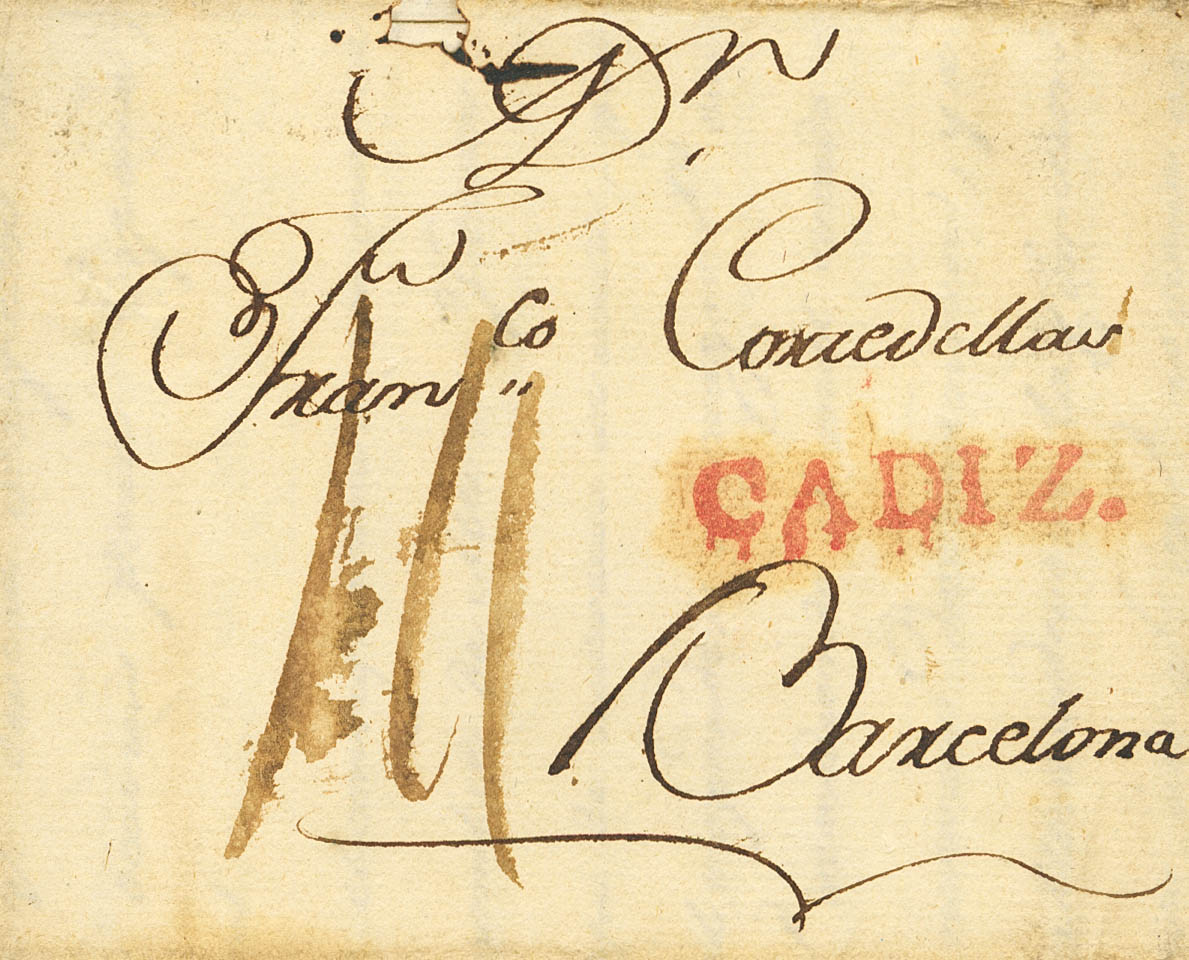 Dn
Franco Corredellas
CADIZ.
Barcelona